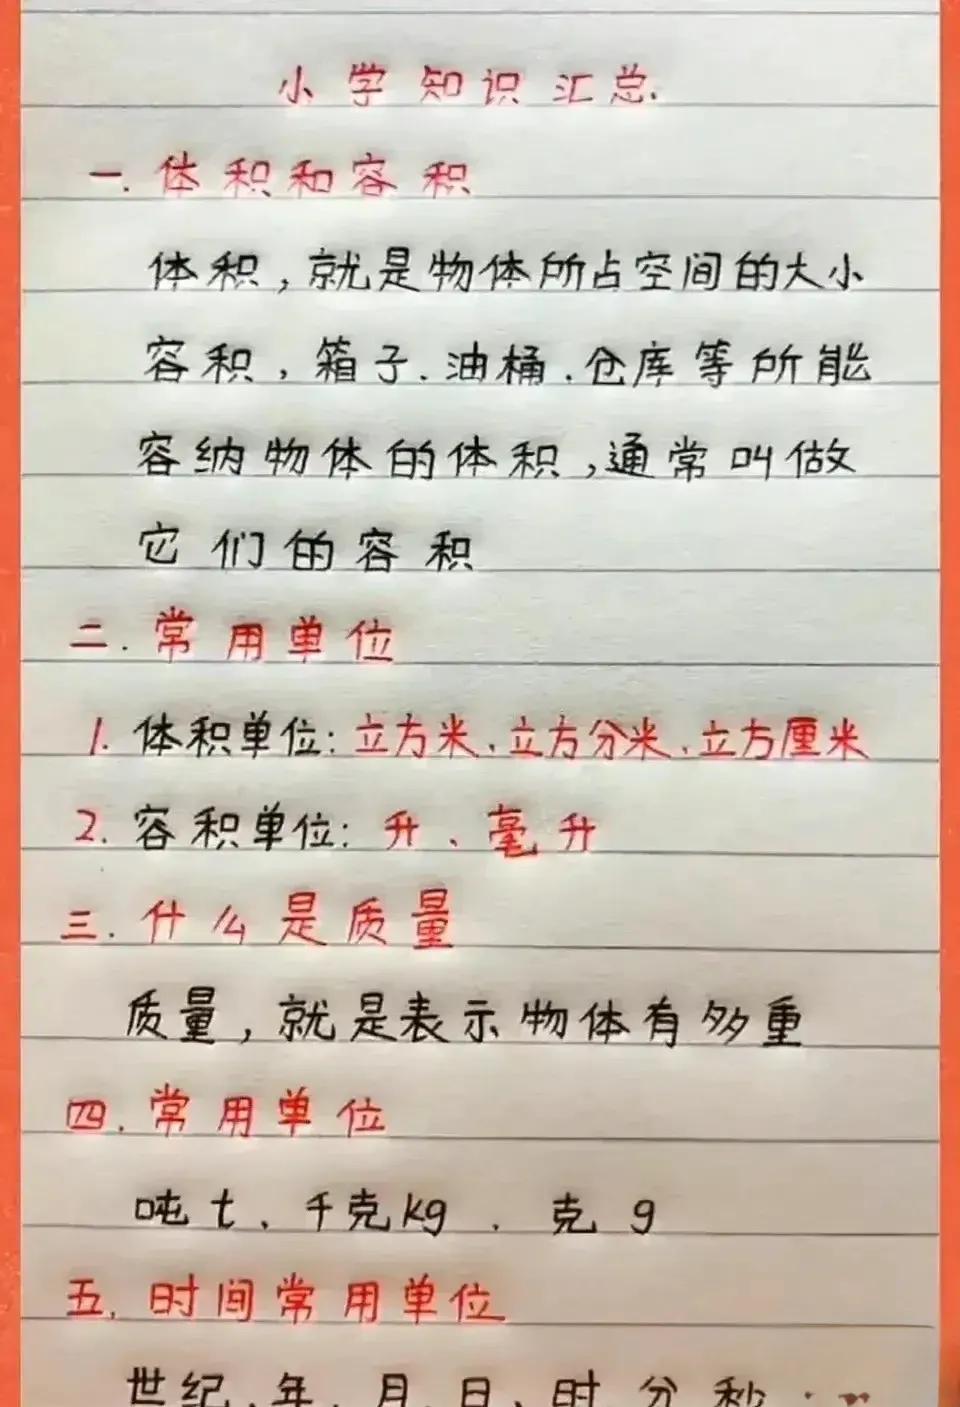 小学知识汇总.
一.体积和容积
体积,就是物体所占空间的大小
容积,箱子.油桶.仓库等所能
容纳物体的体积,通常叫做
它们的容积
二.常用单位
1.体积单位:立方米、立方分米、立方厘米
2.容积单位:升、毫升
三.什么是质量
质量,就是表示物体有多重
四.常用单位
吨t、千克kg.克g
五.时间常用单位
世纪、年、月、日、时分秒